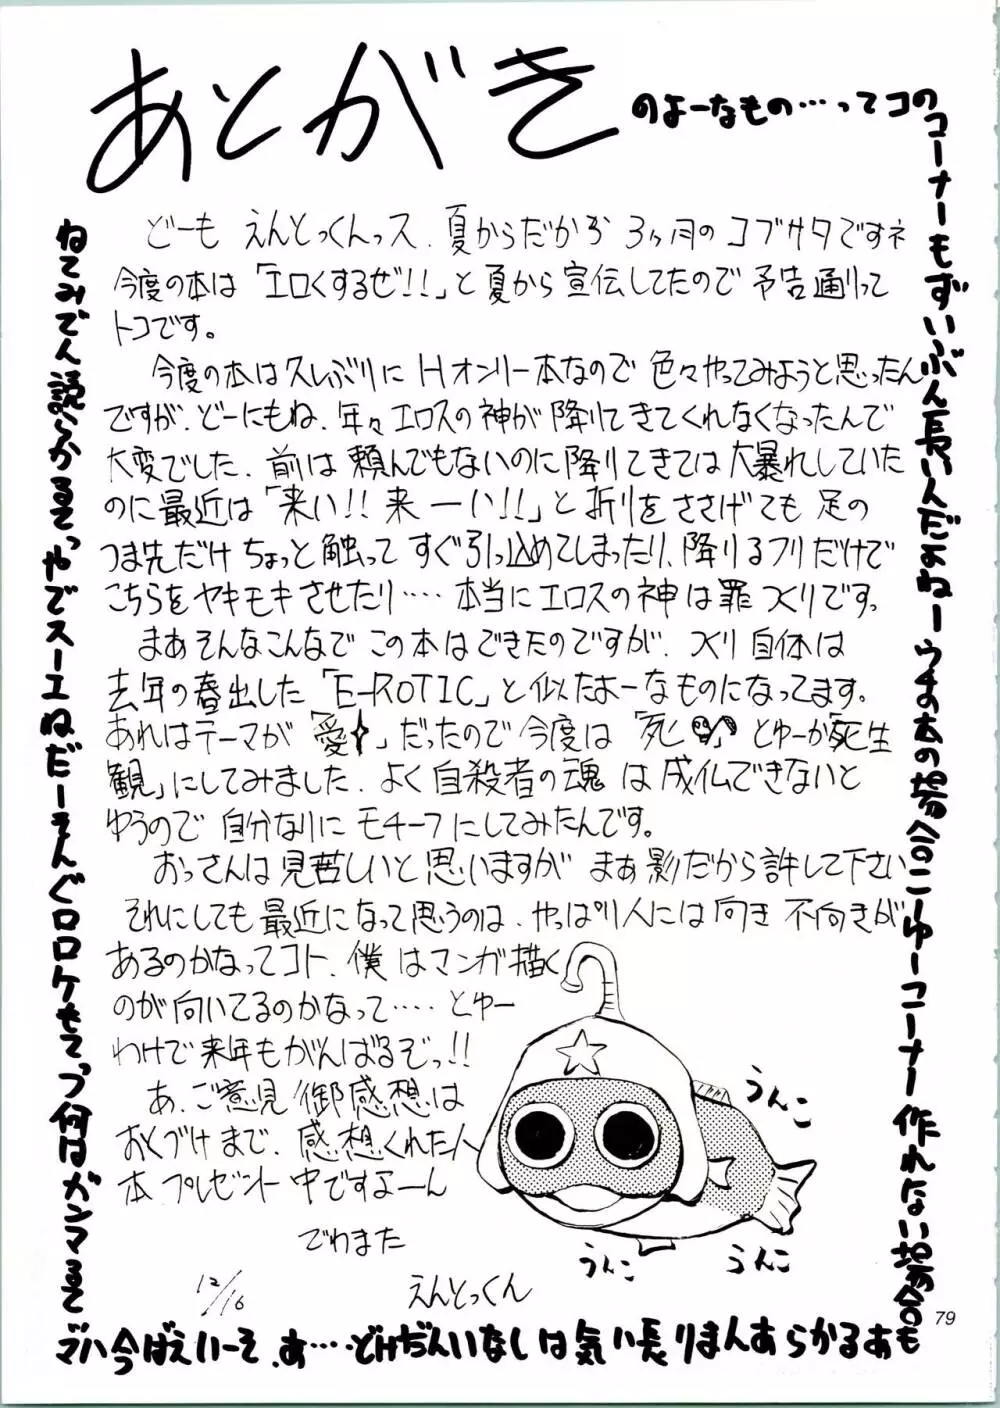 あとがき
のよーなもの…ってコの
コーナーもずいぶん長いんだよねーウチの本の場合こーゆーコーナー作れない場合
もあるからあんまり長い気はしないんだけど…。あ、そーいえば今ハマ
ってるマンガは何つってもケロロぐんそーだねユースでやってるから読んでみてね
どーも えんとっくんっス、夏からだから 3ヶ月のゴブサタですネ
今度の本は「エロくするぜ!!」と夏から宣伝してたので 予告通りって
トコです。
今度の本は久しぶりに Hオンリー本なので 色々やってみようと思ったん
ですが、どーにもね、年々エロスの神が降りてきてくれなくなったんで
大変でした。前は頼んでもないのに降りてきては大暴れしていた
のに最近は「来い!!来ーい!!」と祈りをささげても 足の
つま先だけ ちょっと触って すぐ引っ込めてしまったり、降りるフリだけで
こちらをヤキモキさせたり‥‥本当にエロスの神は罪つくりですっ
まあそんなこんなで この本はできたのですが、つくり自体は
去年の春出した「E-ROTIC」と似たよーなものになってます。
あれはテーマが「愛」だったので今度は「死」とゆーか「死生
観」にしてみました。よく自殺者の魂は成仏できないと
ゆうので 自分なりに モチーフにしてみたんです。
おっさんは見苦しいと思いますが まあ影だから許して下さい
それにしても最近になって思うのは、やっぱり人には向き不向きが
あるのかなってコト、僕はマンガ描く
のが向いてるのかなって‥‥とゆー
わけで来年もがんばるぞっ!!
あ、ご意見 御感想は
おくづけまで、感想くれた人
本プレゼント中ですよーん
でわまた
12/16 えんとっくん
うんこ
うんこ
うんこ
79